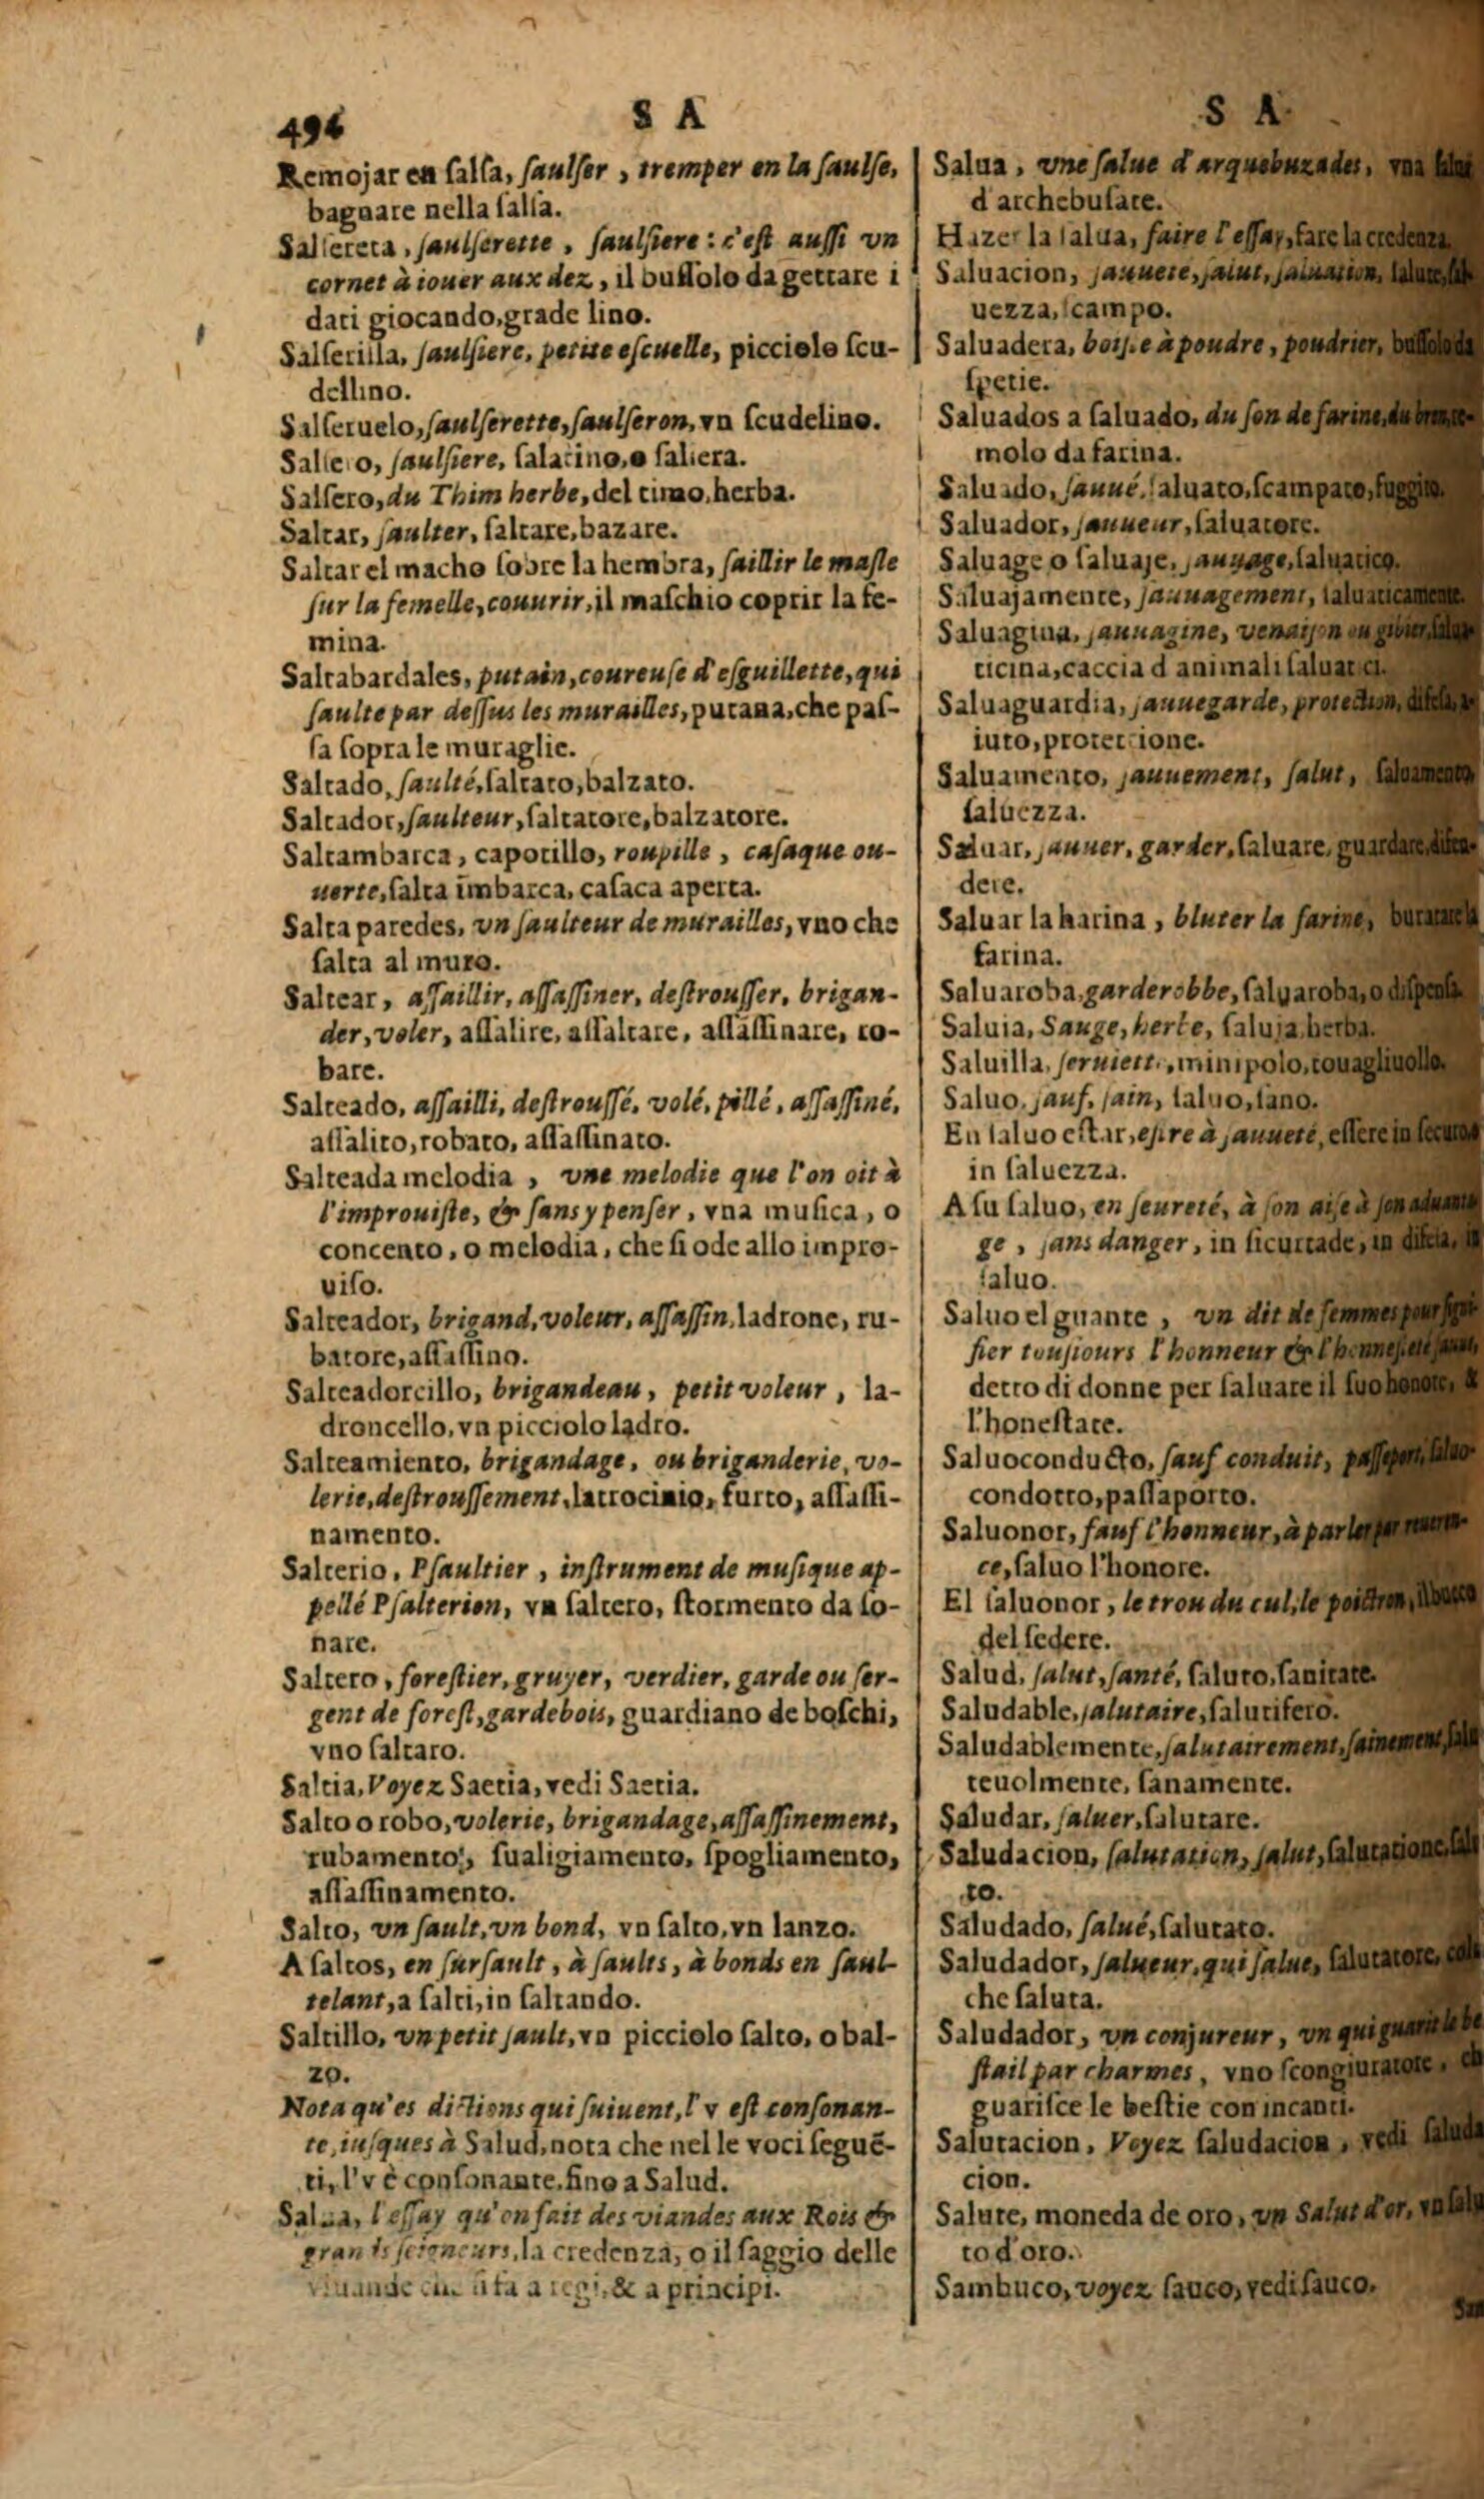 496
S A
Remojar en salsa, saulser, tremper en la saulse,
bagnare nella salsa.
Salsereta, saulserette, saulsiere: c'est aussi vn
cornet à iouer aux dez, il bussolo da gettare i
dati giocando, grade lino.
Salserilla, saulsiere, petite escuelle, picciolo scu-
dellino.
Salseruelo, saulserette, saulseron, vn scudelino.
Salsero, saulsiere, salatino, o saliera.
Salsero, du Thim herbe, del timo, herba.
Saltar, saulter, saltare, bazare.
Saltar el macho sobre la hembra, saillir le masle
sur la femelle, couurir, il maschio coprir la fe-
mina.
Saltabardales, putain, coureuse d'esguillette, qui
saulte par dessus les murailles, putana, che pas-
sa sopra le muraglie.
Saltado, saulté, saltato, balzato.
Saltador, saulteur, saltatore, balzatore.
Saltambarca, capotillo, roupille, casaque ou-
uerte, salta imbarca, casaca aperta.
Salta paredes, vn saulteur de murailles, vno che
salta al muro.
Saltear, assaillir, assassiner, destrousser, brigan-
der, voler, assalire, assaltare, assassinare, ro-
bare.
Salteado, assailli, destroussé, volé, pillé, assassiné,
assalito, robato, assassinato.
Salteada melodia, vne melodie que l'on oit à
l'improuiste, & sans y penser, vna musica, o
concento, o melodia, che si ode allo impro-
uiso.
Salteador, brigand, voleur, assassin, ladrone, ru-
batore, assassino.
Salteadorcillo, brigandeau, petit voleur, la-
droncello, vn picciolo ladro.
Salteamiento, brigandage, ou briganderie, vo-
lerie, destroussement, latrocinio, furto, assassi-
namento.
Salterio, Psaultier, instrument de musique ap-
pellé Psalterion, vn saltero, stormento da so-
nare.
Saltero, forestier, gruyer, verdier, garde ou ser-
gent de forest, gardebois, guardiano de boschi,
vno saltaro.
Saltia, Voyez Saetia, vedi Saetia.
Salto o robo, volerie, brigandage, assassinement,
rubamento, sualigiamento, spogliamento,
assassinamento.
Salto, vn sault, vn bond, vn salto, vn lanzo.
A saltos, en sursault, à saults, à bonds en saul-
telant, a salti, in saltando.
Saltillo, vn petit sault, vn picciolo salto, o bal-
zo.
Nota qu'es dictions qui suiuent, l'v est consonan-
te, iusques à Salud, nota che nel le voci seguē-
ti, l'v è consonante, fino a Salud.
Salua, l'essay qu'on fait des viandes aux Rois &
grands seigneurs, la credenza, o il saggio delle
viuande che si fa a regi, & a principi.
S A
Salua, vne salue d'arquebuzades, vna
d'archebusate.
Hazer la salua, faire l'essay, fare la credenza.
Saluacion, sauueté, salut, saluation,
uezza, scampo.
Saluadera, boiste à poudre, poudrier, bussolo da
spetie.
Saluados a saluado, du son de farine, du
molo da farina.
Saluado, sauué, saluato, scampato, fuggito.
Saluador, sauueur, saluatore.
Saluage o saluaje, sauuage, saluatico.
Saluajamente, sauuagement, saluaticamente.
Saluagina, sauuagine, venaison ou gibier,
ticina, caccia d'animali saluatici.
Saluaguardia, sauuegarde, protection, difesa,
iuto, protectione.
Saluamento, sauuement, salut, saluamento,
saluezza.
Saluar, sauuer, garder, saluare, guardare, difen-
dere.
Saluar la harina, bluter la farine,
farina.
Saluaroba, garderobbe, saluaroba, o dispensa.
Saluia, Sauge, herbe, saluia herba.
Saluilla, seruiette, minipolo, touagliuollo.
Saluo, sauf, sain, saluo, sano.
En saluo estar, estre à sauueté, essere in
in saluezza.
A su saluo, en seureté, à son aise à son aduanta-
ge, sans danger, in sicurtade, in difesa, in
saluo.
Saluo el guante, vn dit de femmes pour signi-
fier tousiours l'honneur & l'honnesteté
detto di donne per saluare il suo honore, &
l'honestate.
Saluoconducto, sauf conduit, passeport, saluo-
condotto, passaporto.
Saluonor, sauf l'honneur, à parler par reueren-
ce, saluo l'honore.
El saluonor, le trou du cul, le poictron,
del sedere.
Salud, salut, santé, saluto, sanitate.
Saludable, salutaire, salutifero.
Saludablemente, salutairement, sainement,
teuolmente, sanamente.
Saludar, saluer, salutare.
Saludacion, salutation, salut, salutatione, salu-
to.
Saludado, salué, salutato.
Saludador, salueur, qui salue, salutatore,
che saluta.
Saludador, vn conjureur, vn qui guarit le be-
stail par charmes, vno scongiuratore, ch
guarisce le bestie con incanti.
Salutacion, Voyez saludacion, vedi saluda
cion.
Salute, moneda de oro, vn Salut d'or, vn salu
to d'oro.
Sambuco, voyez sauco, vedi sauco.